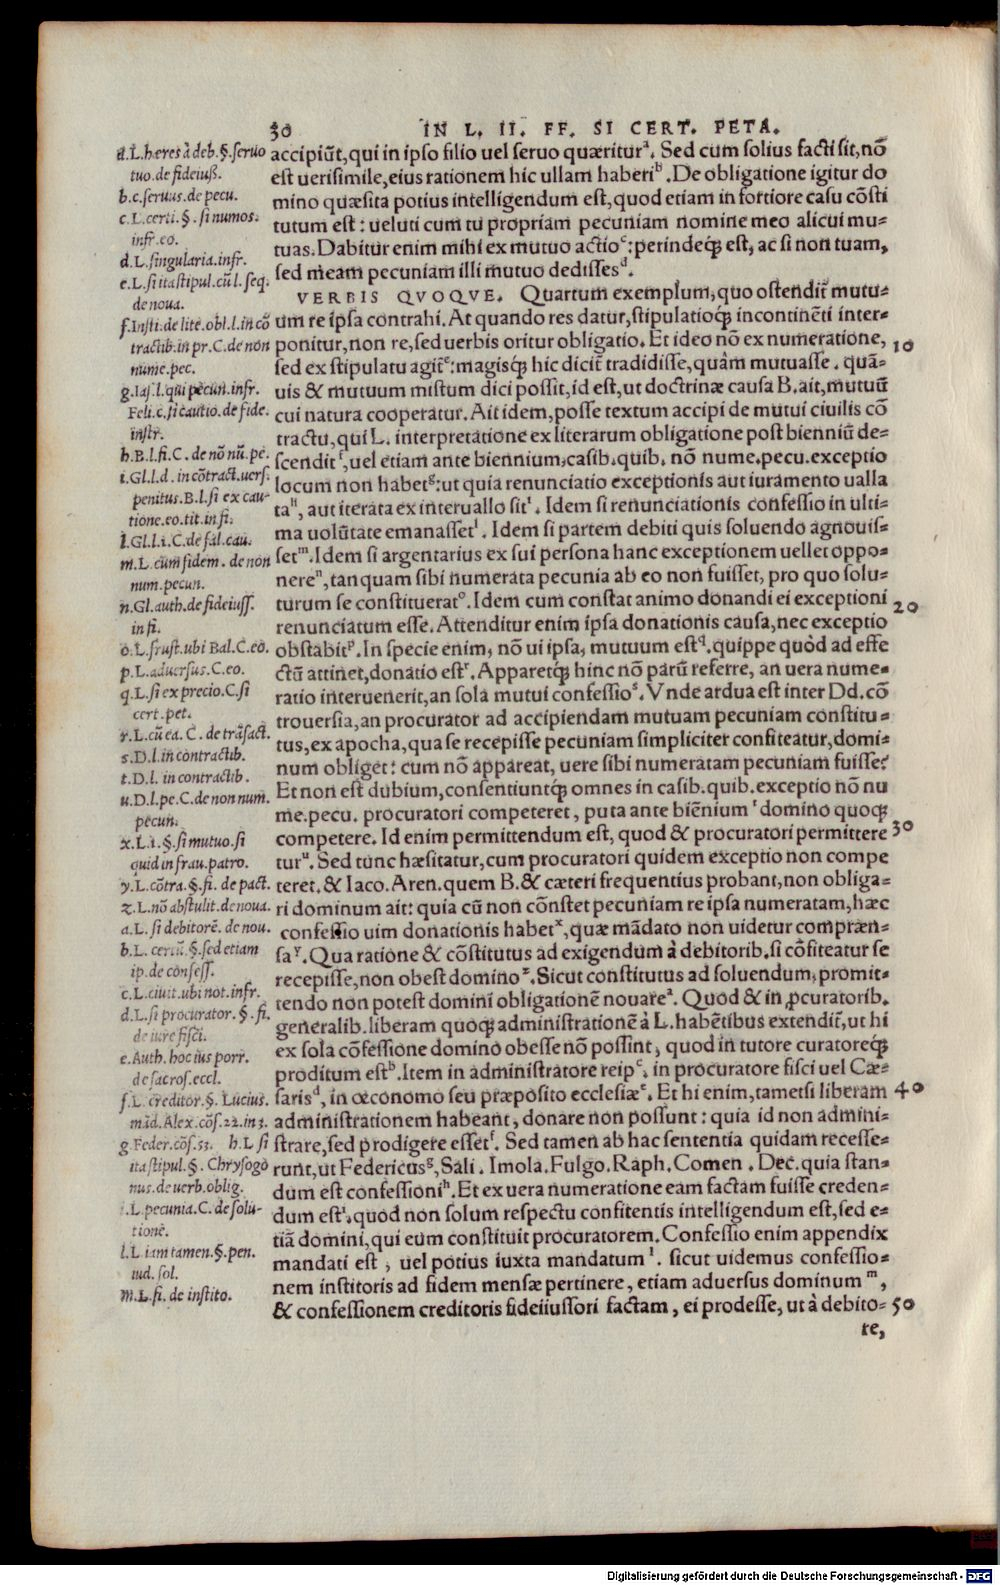 30 IN L. II. FF. SI CERT. PETA.
accipiũt, qui in ipso filio uel seruo quæritur ᵃ. Sed cum solius facti sit, nõ
est uerisimile, eius rationem hic ullam haberi ᵇ. De obligatione igitur do
mino quæsita potius intelligendum est, quod etiam in fortiore casu cõsti
tutum est: ueluti cum tu propriam pecuniam nomine meo alicui mu-
tuas. Dabitur enim mihi ex mutuo actio ᶜ: perindeq́; est, ac si non tuam,
sed meam pecuniam illi mutuo dedisses ᵈ.
VERBIS QVOQVE. Quartum exemplum, quo ostendit̃ mutu-
um re ipsa contrahi. At quando res datur, stipulatioq́; incontinẽti inter-
ponitur, non re, sed uerbis oritur obligatio. Et ideo nõ ex numeratione, 10
sed ex stipulatu agit̃ ᵉ: magisq́; hic dicit̃ tradidisse, quàm mutuasse. quã-
uis & mutuum mistum dici possit, id est, ut doctrinæ causa B. ait, mutuũ
cui natura cooperatur. Ait idem, posse textum accipi de mutui ciuilis cõ
tractu, qui L. interpretatione ex literarum obligatione post bienniũ de-
scendit ᶠ, uel etiam ante biennium, casib. quib. nõ nume. pecu. exceptio
locum non habet ᵍ: ut quia renunciatio exceptionis aut iuramento ualla
ta ʰ, aut iterata ex interuallo sit ⁱ. Idem si renunciationis confessio in ulti-
ma uolũtate emanasset ˡ. Idem si partem debiti quis soluendo agnouis-
set ᵐ. Idem si argentarius ex sui persona hanc exceptionem uellet oppo-
nere ⁿ, tanquam sibi numerata pecunia ab eo non fuisset, pro quo solu-
turum se constituerat ᵒ. Idem cum constat animo donandi ei exceptioni 20
renunciatum esse. Attenditur enim ipsa donationis causa, nec exceptio
obstabit ᵖ. In specie enim, nõ ui ipsa, mutuum est ᑫ. quippe quòd ad effe
ctũ attinet, donatio est ʳ. Apparetq́; hinc nõ parũ referre, an uera nume-
ratio interuenerit, an sola mutui confessio ˢ. Vnde ardua est inter Dd. cõ
trouersia, an procurator ad accipiendam mutuam pecuniam constitu-
tus, ex apocha, qua se recepisse pecuniam simpliciter confiteatur, domi-
num obliget: cum nõ appareat, uere sibi numeratam pecuniam fuisse?
Et non est dubium, consentiuntq́; omnes in casib. quib. exceptio nõ nu
me. pecu. procuratori competeret, puta ante biẽnium ᵗ domino quoq́;
competere. Id enim permittendum est, quod & procuratori permittere 30
tur ᵘ. Sed tunc hæsitatur, cum procuratori quidem exceptio non compe
teret. & Iaco. Aren. quem B. & cæteri frequentius probant, non obliga-
ri dominum ait: quia cũ non cõstet pecuniam re ipsa numeratam, hæc
confessio uim donationis habet ˣ, quæ mãdato non uidetur compræn-
sa ʸ. Qua ratione & cõstitutus ad exigendum à debitorib. si cõfiteatur se
recepisse, non obest domino ᶻ. Sicut constitutus ad soluendum, promit-
tendo non potest domini obligationẽ nouare ᵃ. Quod & in ꝓcuratorib.
generalib. liberam quoq́; administrationẽ à L. habẽtibus extendit̃, ut hi
ex sola cõfessione domino obesse nõ possint, quod in tutore curatoreq́;
proditum est ᵇ. Item in administratore reip ᶜ. in procuratore fisci uel Cæ-
saris ᵈ, in œconomo seu præposito ecclesiæ ᵉ. Et hi enim, tametsi liberam 40
administrationem habeant, donare non possunt: quia id non admini-
strare, sed prodigere esset ᶠ. Sed tamen ab hac sententia quidam recesse-
runt, ut Federicus ᵍ, Sali. Imola. Fulgo. Raph. Comen. Dec. quia stan-
dum est confessioni ʰ. Et ex uera numeratione eam factam fuisse creden-
dum est ⁱ, quod non solum respectu confitentis intelligendum est, sed e-
tiã domini, qui eum constituit procuratorem. Confessio enim appendix
mandati est, uel potius iuxta mandatum ˡ. sicut uidemus confessio-
nem institoris ad fidem mensæ pertinere, etiam aduersus dominum ᵐ,
& confessionem creditoris fideiussori factam, ei prodesse, ut à debito- 50
re,
a. L. hæres à deb. §. seruo
tuo. de fideiuss.
b. c. seruus. de pecu.
c. L. certi. §. si numos.
infr. eo.
d. L. singularia. infr.
e. L. si ita stipul. cũ l. seq.
de noua.
f. Insti. de lite. obl. l. in cõ
tractib. in pr. C. de non
nume. pec.
g. Ias. l. qui pecun. infr.
Feli. c. si cautio. de fide.
instr.
h. B. l. fi. C. de nõ nũ. pe.
i. Gl. l. d. in cõtract. uers.
penitus. B. l. si ex cau-
tione. eo. tit. in fi.
l. Gl. l. i. C. de fal. cau.
m. L. cùm fidem. de non
num. pecun.
n. Gl. auth. de fideiuss.
in fi.
o. L. frust. ubi Bal. C. eo.
p. L. aduersus. C. eo.
q. L. si ex precio. C. si
cert. pet.
r. L. cũ ea. C. de trãsact.
s. D. l. in contractib.
t. D. l. in contractib.
u. D. l. pe. C. de non num.
pecun.
x. L. i. §. si mutuo. si
quid in frau. patro.
y. L. cõtra. §. fi. de pact.
z. L. nõ abstulit. de noua.
a. L. si debitorẽ. de nou.
b. L. certũ. §. sed etiam
ip. de confess.
c. L. ciuit. ubi not. infr.
d. L. si procurator. §. fi.
de iure fisci.
e. Auth. hoc ius porr.
de sacros. eccl.
f. L. creditor. §. Lucius.
mãd. Alex. cõs. 22. in 3.
g. Feder. cõs. 53. h. L si
ita stipul. §. Chrysogo
nus. de uerb. oblig.
i. L. pecunia. C. de solu-
tionẽ.
l. L. iam tamen. §. pen.
iud. sol.
m. L. fi. de instito.
Digitalisierung gefördert durch die Deutsche Forschungsgemeinschaft - DFG